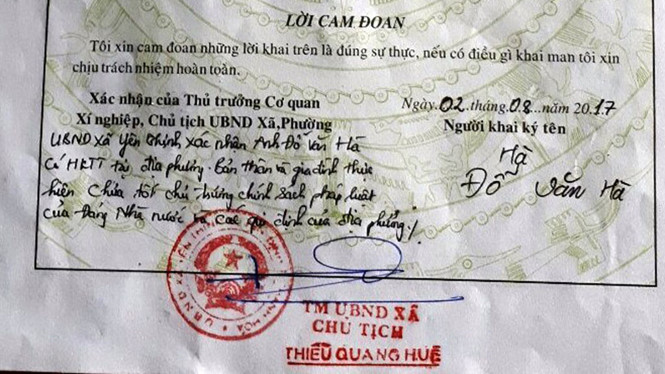 LỜI CAM ĐOAN
Tôi xin cam đoan những lời khai trên là đúng sự thực, nếu có điều gì khai man tôi xin
chịu trách nhiệm hoàn toàn.
Xác nhận của Thủ trưởng Cơ quan
Xí nghiệp, Chủ tịch UBND Xã,Phường
Ngày 02 tháng 08 năm 2017
Người khai ký tên
UBND xã Yên Thịnh xác nhận Anh Đỗ Văn Hà
Có HKTT tại địa phương. Bản thân và gia đình thực
hiện Chưa tốt chủ trương chính sách pháp luật
của Đảng Nhà nước và các quy định của địa phương./.
Hà
Đỗ Văn Hà
TM UBND XÃ
CHỦ TỊCH
THIỀU QUANG HUÊ